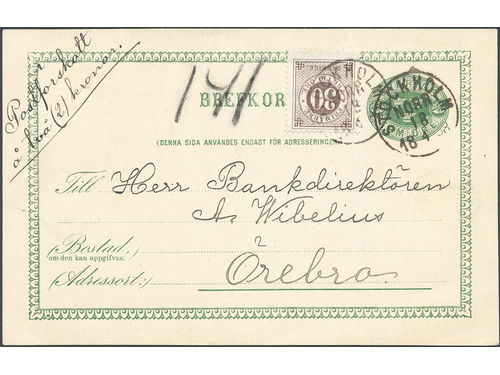 Postförskott
å två (2) kronor.
141
BREFKORT
30
STOCKHOLM
NORR
18
(DENNA SIDA ANVÄNDES ENDAST FÖR ADRESSERINGEN.)
Till Herr Bankdirektören
A. Wibelius
(Bostad:)
om den kan uppgifvas:
Örebro
(Adressort:)